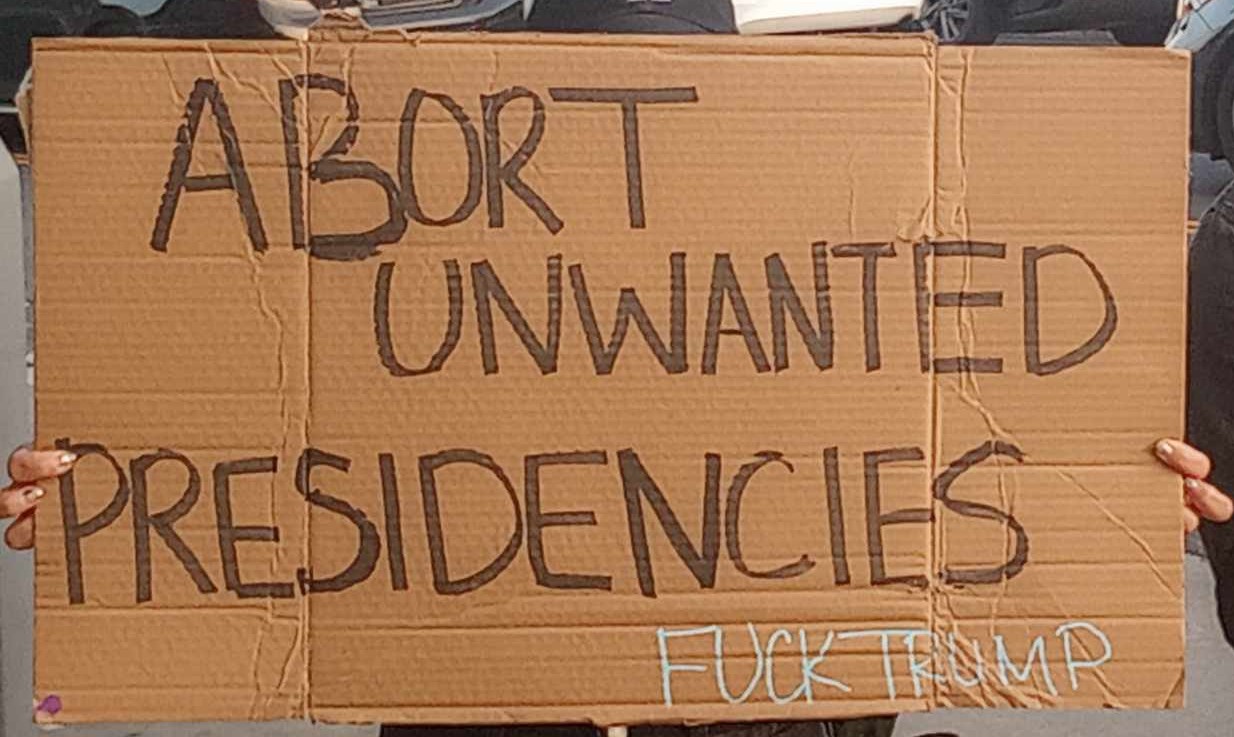 ABORT
UNWANTED
PRESIDENCIES
FUCK TRUMP